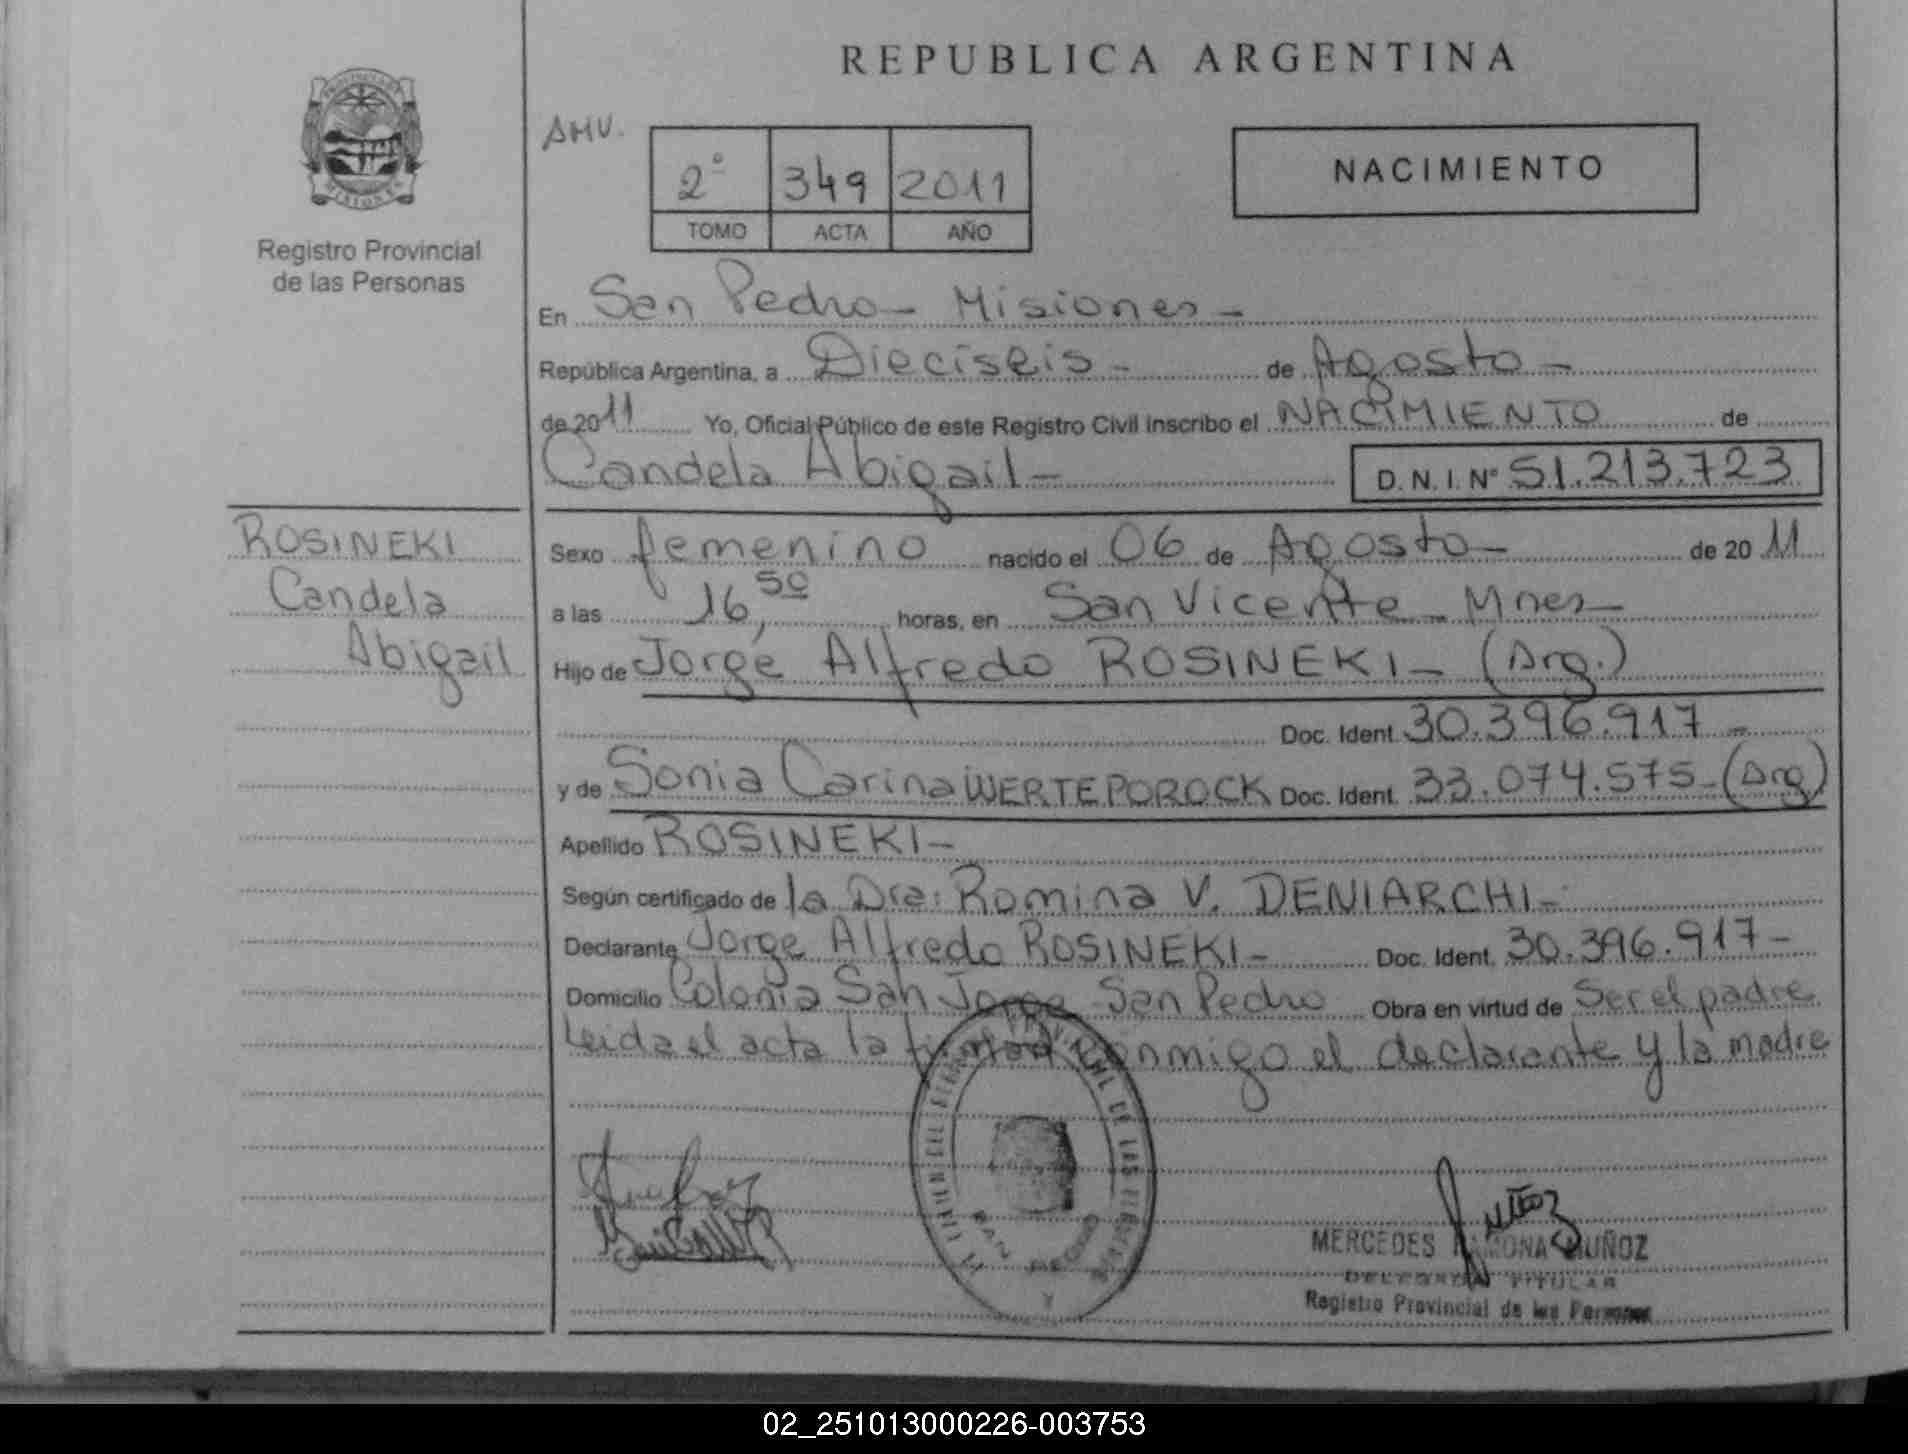 REPUBLICA ARGENTINA
AMU.
2º 349 2011
TOMO ACTA AÑO
NACIMIENTO
Registro Provincial
de las Personas
En San Pedro - Misiones -
República Argentina, a Dieciseis - de Agosto -
de 2011 Yo, Oficial Público de este Registro Civil inscribo el NACIMIENTO de
Candela Abigail - D. N. I. Nº 51.213.723
ROSINEKI
Candela
Abigail
Sexo femenino nacido el 06 de Agosto - de 2011
a las 16,50 horas, en San Vicente - Mnes -
Hijo de Jorge Alfredo ROSINEKI - (Arg.)
Doc. Ident. 30.396.917 -
y de Sonia Carina WERTEPOROCK Doc. Ident. 33.074.575 - (Arg)
Apellido ROSINEKI -
Según certificado de la Dra: Romina V. DENIARCHI -
Declarante Jorge Alfredo ROSINEKI - Doc. Ident. 30.396.917 -
Domicilio Colonia San Jorge San Pedro Obra en virtud de Ser el padre
Leida el acta la firman conmigo el declarante y la madre
PROVINCIAL DE LAS PERSONAS
SAN PEDRO
MERCEDES RAMONA MUÑOZ
DELEGADA TITULAR
Registro Provincial de las Personas
02_251013000226-003753